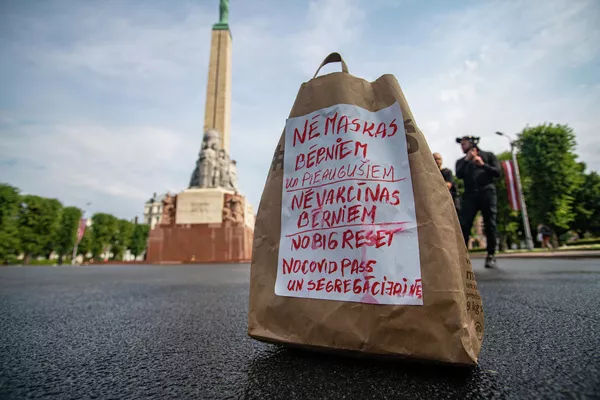 NĒ MASKAS
BĒRNIEM
UN PIEAUGUŠIEM
NĒ VAKCĪNAS
BĒRNIEM
NO BIG RESET
NO COVID PASS
UN SEGREGĀCIJAI NĒ